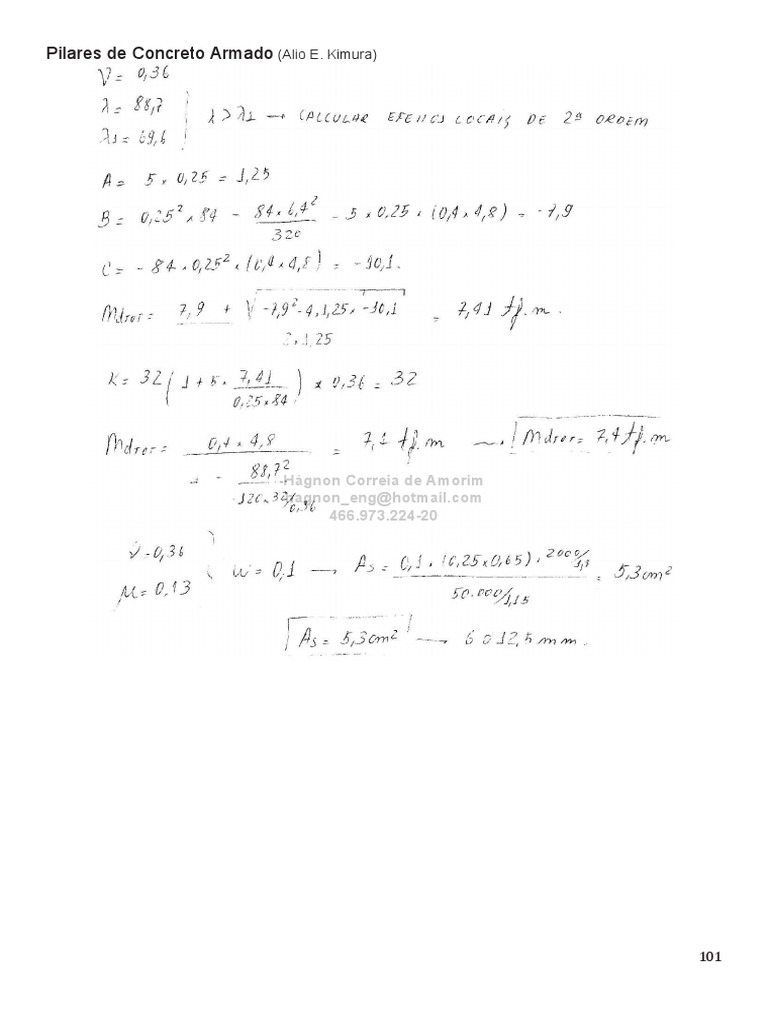 Pilares de Concreto Armado (Alio E. Kimura)
V = 0,36
λ = 88,7
λ1 = 69,6
λ > λ1 → CALCULAR EFEITOS LOCAIS DE 2ª ORDEM
A = 5 x 0,25 = 1,25
B = 0,25² x 84 - 84 x 6,4² / 320 - 5 x 0,25 x (0,4 x 4,8) = -7,9
C = - 84 x 0,25² x (0,4 x 4,8) = -10,1.
Mdtot = 7,9 + √ -7,9² - 4.1,25 x -10,1 / 2.1,25 = 7,41 tf.m.
K = 32 ( 1 + 5 x 7,41 / 0,25 x 84 ) x 0,36 = 32
Mdtot = 0,4 x 4,8 / 1 - 88,7² / 120 x 32/0,36 = 7,1 tf.m → Mdtot = 7,4 tf.m
Hágnon Correia de Amorim
hagnon_eng@hotmail.com
466.973.224-20
ν = 0,36
μ = 0,13
W = 0,1 → As = 0,1 . (0,25 x 0,65) . 2000/1,4 / 50.000/1,15 = 5,3cm²
As = 5,3cm² → 6 Ø 12,5 mm.
101